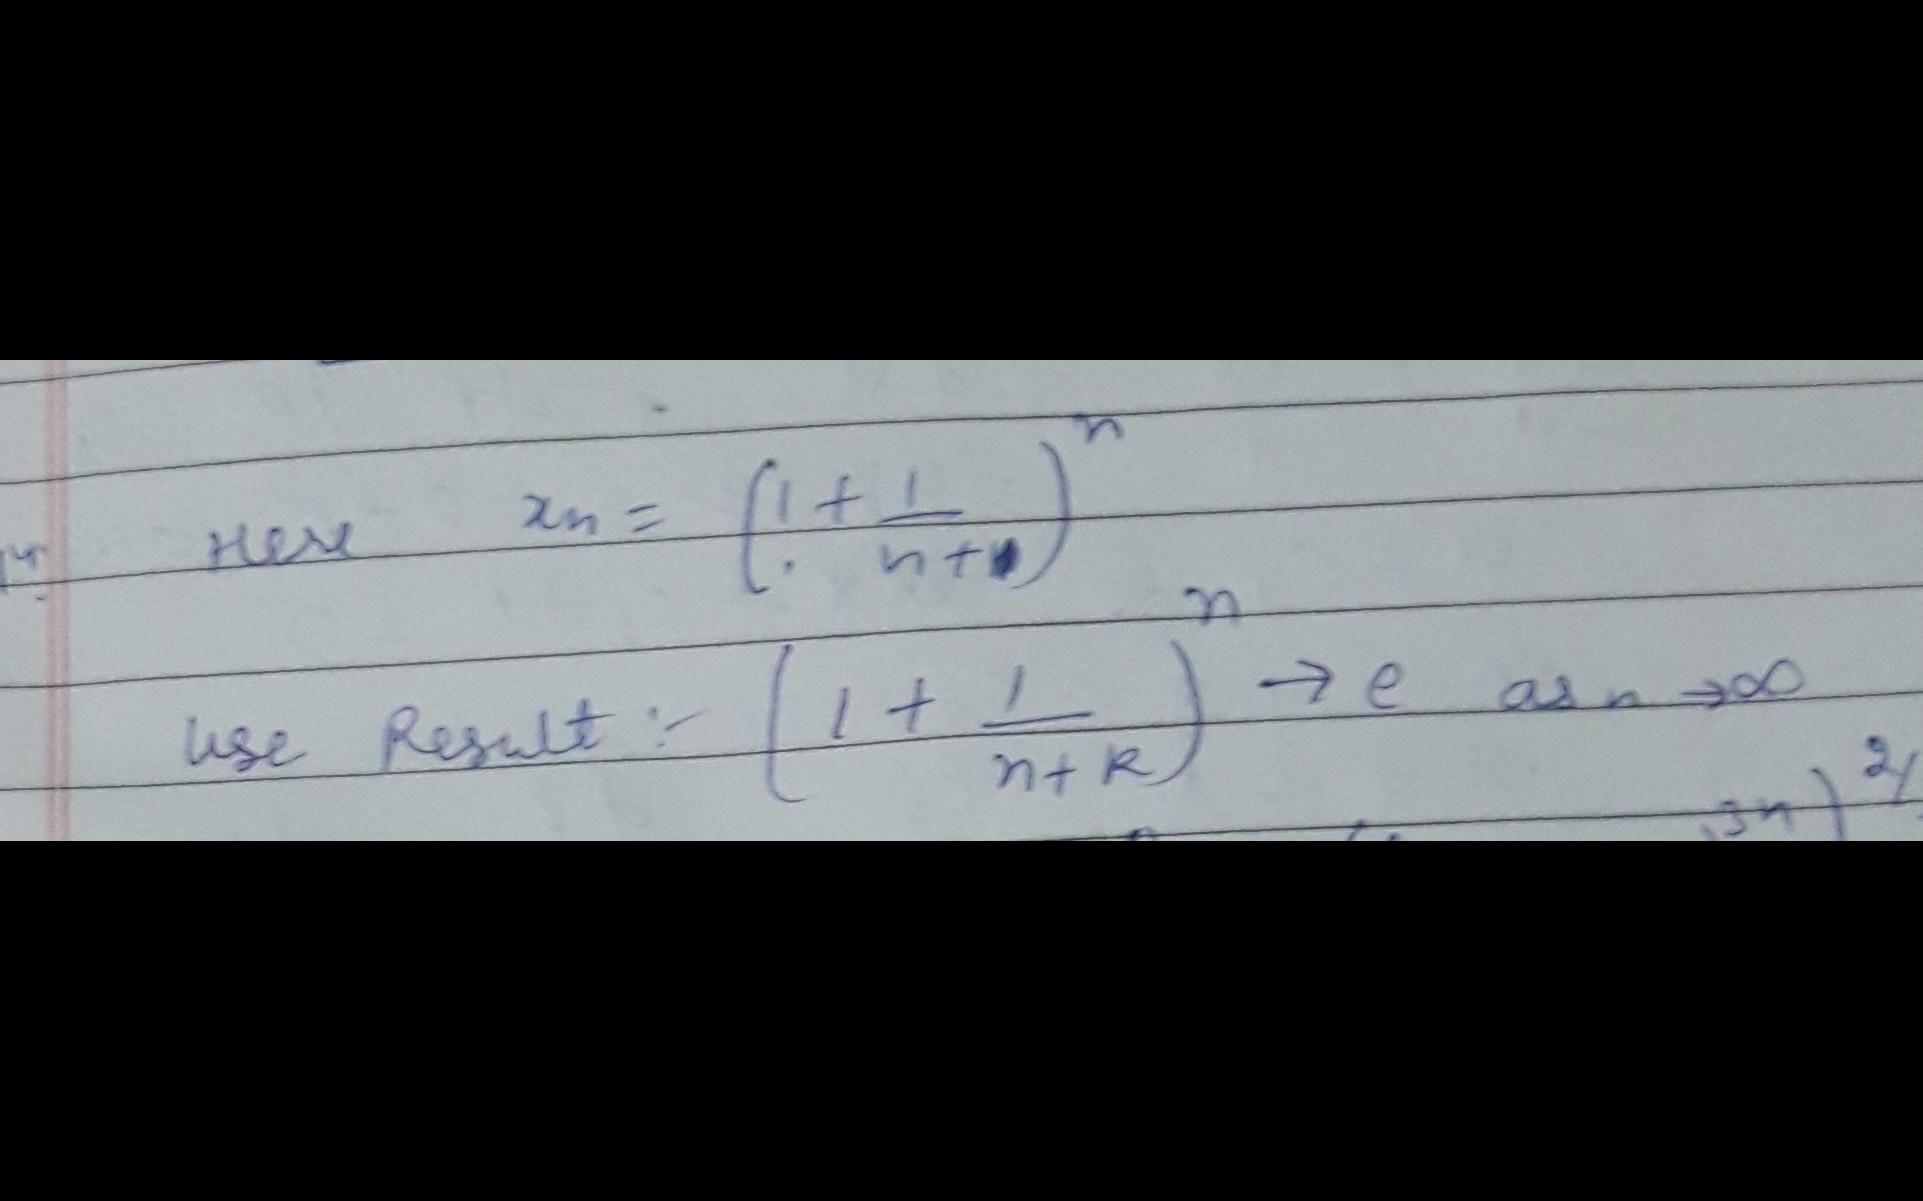 14. Here xn = (1 + 1/(n+1))^n
Use Result :- (1 + 1/(n+k))^n → e as n → ∞